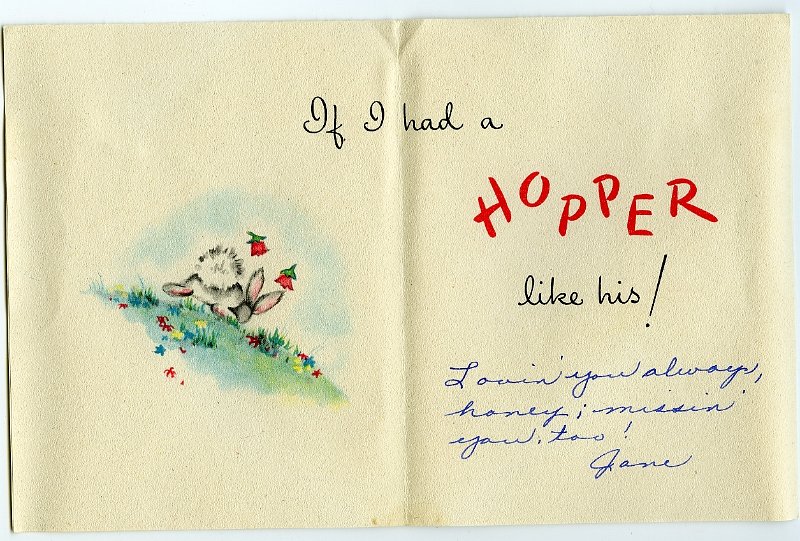 If I had a
HOPPER
like his!
Lovin' you always,
honey; missin'
you, too!
Jane